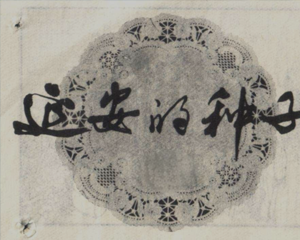 延安的种子